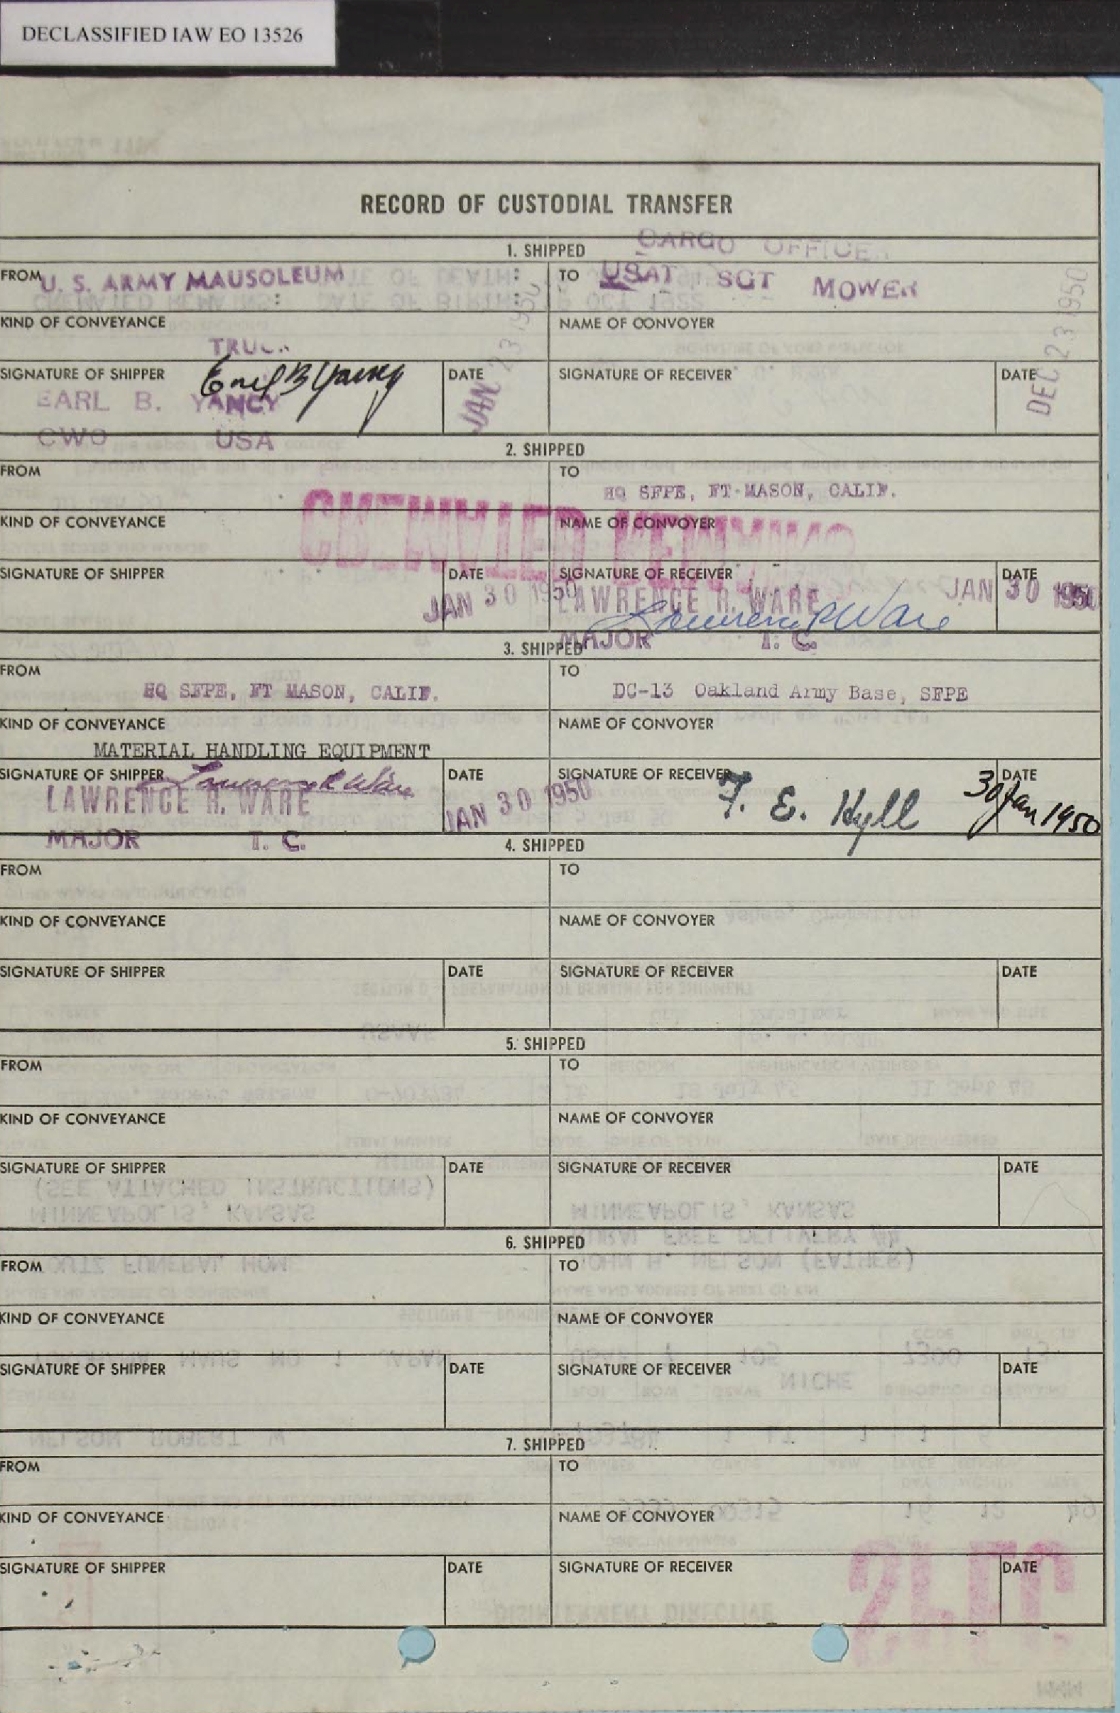 DECLASSIFIED IAW EO 13526
RECORD OF CUSTODIAL TRANSFER
1. SHIPPED
CARGO OFFICE
FROM U. S. ARMY MAUSOLEUM
TO USAT SGT MOWER
KIND OF CONVEYANCE
TRUCK
NAME OF CONVOYER
SIGNATURE OF SHIPPER
Earl B Yancy
EARL B. YANCY
CWO USA
DATE
JAN 23 1950
SIGNATURE OF RECEIVER
DATE
DEC 23 1950
2. SHIPPED
FROM
TO
HQ SFPE, FT MASON, CALIF.
KIND OF CONVEYANCE
NAME OF CONVOYER
SIGNATURE OF SHIPPER
DATE
JAN 30 1950
SIGNATURE OF RECEIVER
LAWRENCE R. WARE
Lawrence R Ware
MAJOR T. C.
DATE
JAN 30 1950
3. SHIPPED
FROM
HQ SFPE, FT MASON, CALIF.
TO
DC-13 Oakland Army Base, SFPE
KIND OF CONVEYANCE
MATERIAL HANDLING EQUIPMENT
NAME OF CONVOYER
SIGNATURE OF SHIPPER
Lawrence R Ware
LAWRENCE R. WARE
MAJOR T. C.
DATE
JAN 30 1950
SIGNATURE OF RECEIVER
F. E. Hyll
DATE
30 Jan 1950
4. SHIPPED
FROM
TO
KIND OF CONVEYANCE
NAME OF CONVOYER
SIGNATURE OF SHIPPER
DATE
SIGNATURE OF RECEIVER
DATE
5. SHIPPED
FROM
TO
KIND OF CONVEYANCE
NAME OF CONVOYER
SIGNATURE OF SHIPPER
DATE
SIGNATURE OF RECEIVER
DATE
6. SHIPPED
FROM
TO
KIND OF CONVEYANCE
NAME OF CONVOYER
SIGNATURE OF SHIPPER
DATE
SIGNATURE OF RECEIVER
DATE
7. SHIPPED
FROM
TO
KIND OF CONVEYANCE
NAME OF CONVOYER
SIGNATURE OF SHIPPER
DATE
SIGNATURE OF RECEIVER
DATE